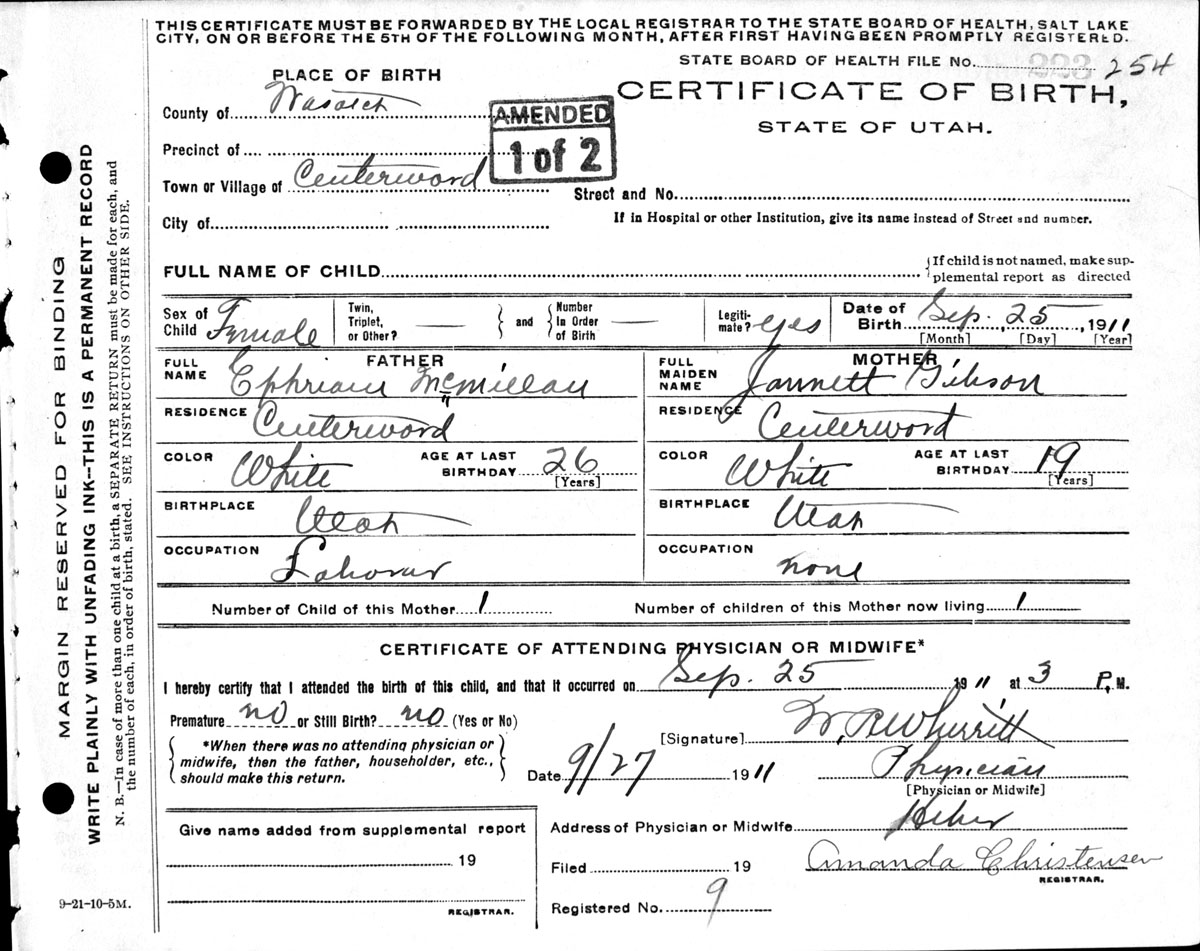 THIS CERTIFICATE MUST BE FORWARDED BY THE LOCAL REGISTRAR TO THE STATE BOARD OF HEALTH, SALT LAKE
CITY, ON OR BEFORE THE 5TH OF THE FOLLOWING MONTH, AFTER FIRST HAVING BEEN PROMPTLY REGISTERED.
STATE BOARD OF HEALTH FILE No. 223 254
PLACE OF BIRTH
CERTIFICATE OF BIRTH,
STATE OF UTAH.
County of Wasatch
AMENDED
1 of 2
Precinct of
Town or Village of Centerword
Street and No.
City of
If in Hospital or other Institution, give its name instead of Street and number.
FULL NAME OF CHILD
{If child is not named, make sup-
plemental report as directed
Sex of Child Female
Twin, Triplet, or Other? — } and { Number In Order of Birth —
Legiti-mate? yes
Date of Birth Sep. 25, 1911
[Month] [Day] [Year]
FATHER
FULL NAME Ephriam McMillan
RESIDENCE Centerword
COLOR White AGE AT LAST BIRTHDAY 26
[Years]
BIRTHPLACE Utah
OCCUPATION Laborer
MOTHER
FULL MAIDEN NAME Jannett Gibson
RESIDENCE Centerword
COLOR White AGE AT LAST BIRTHDAY 19
[Years]
BIRTHPLACE Utah
OCCUPATION none
Number of Child of this Mother 1 Number of children of this Mother now living 1
CERTIFICATE OF ATTENDING PHYSICIAN OR MIDWIFE*
I hereby certify that I attended the birth of this child, and that it occurred on Sep. 25 1911 at 3 P. M.
Premature no or Still Birth? no (Yes or No)
*When there was no attending physician or
midwife, then the father, householder, etc.,
should make this return.
[Signature] W. R. Wherritt
Date 9/27 1911 Physician
[Physician or Midwife]
Give name added from supplemental report
19
REGISTRAR.
Address of Physician or Midwife Heber
Filed 19 Amanda Christensen
REGISTRAR.
Registered No. 9
MARGIN RESERVED FOR BINDING
WRITE PLAINLY WITH UNFADING INK--THIS IS A PERMANENT RECORD
N. B.—In case of more than one child at a birth, a SEPARATE RETURN must be made for each, and
the number of each, in order of birth, stated. SEE INSTRUCTIONS ON OTHER SIDE.
9-21-10-5M.